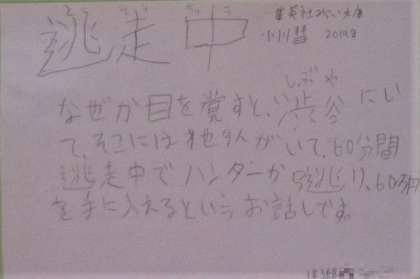 逃走中
集英社みらい文庫
小川彗 2019年
しぶや
なぜか目を覚すと、渋谷にい
て、そこには他9人がいて、60分間
逃走中でハンターから逃り、60万円
を手に入れるというお話しです。